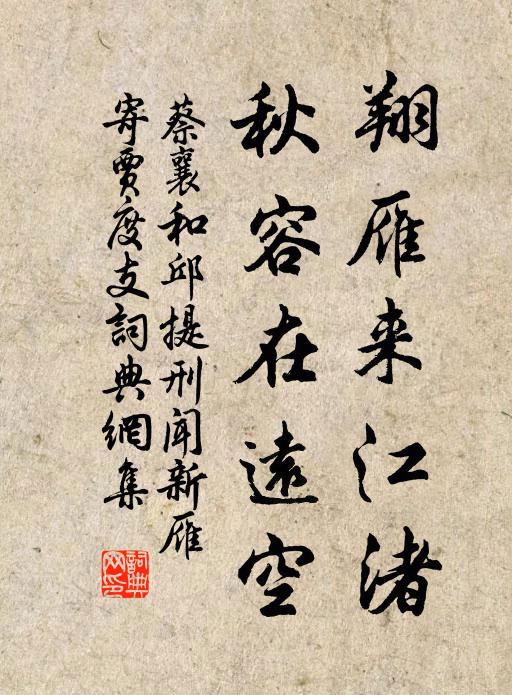 翔雁来江渚
秋容在遠空
蔡襄和邱提刑聞新雁
寄賈度支詞典網集
詞典
网印